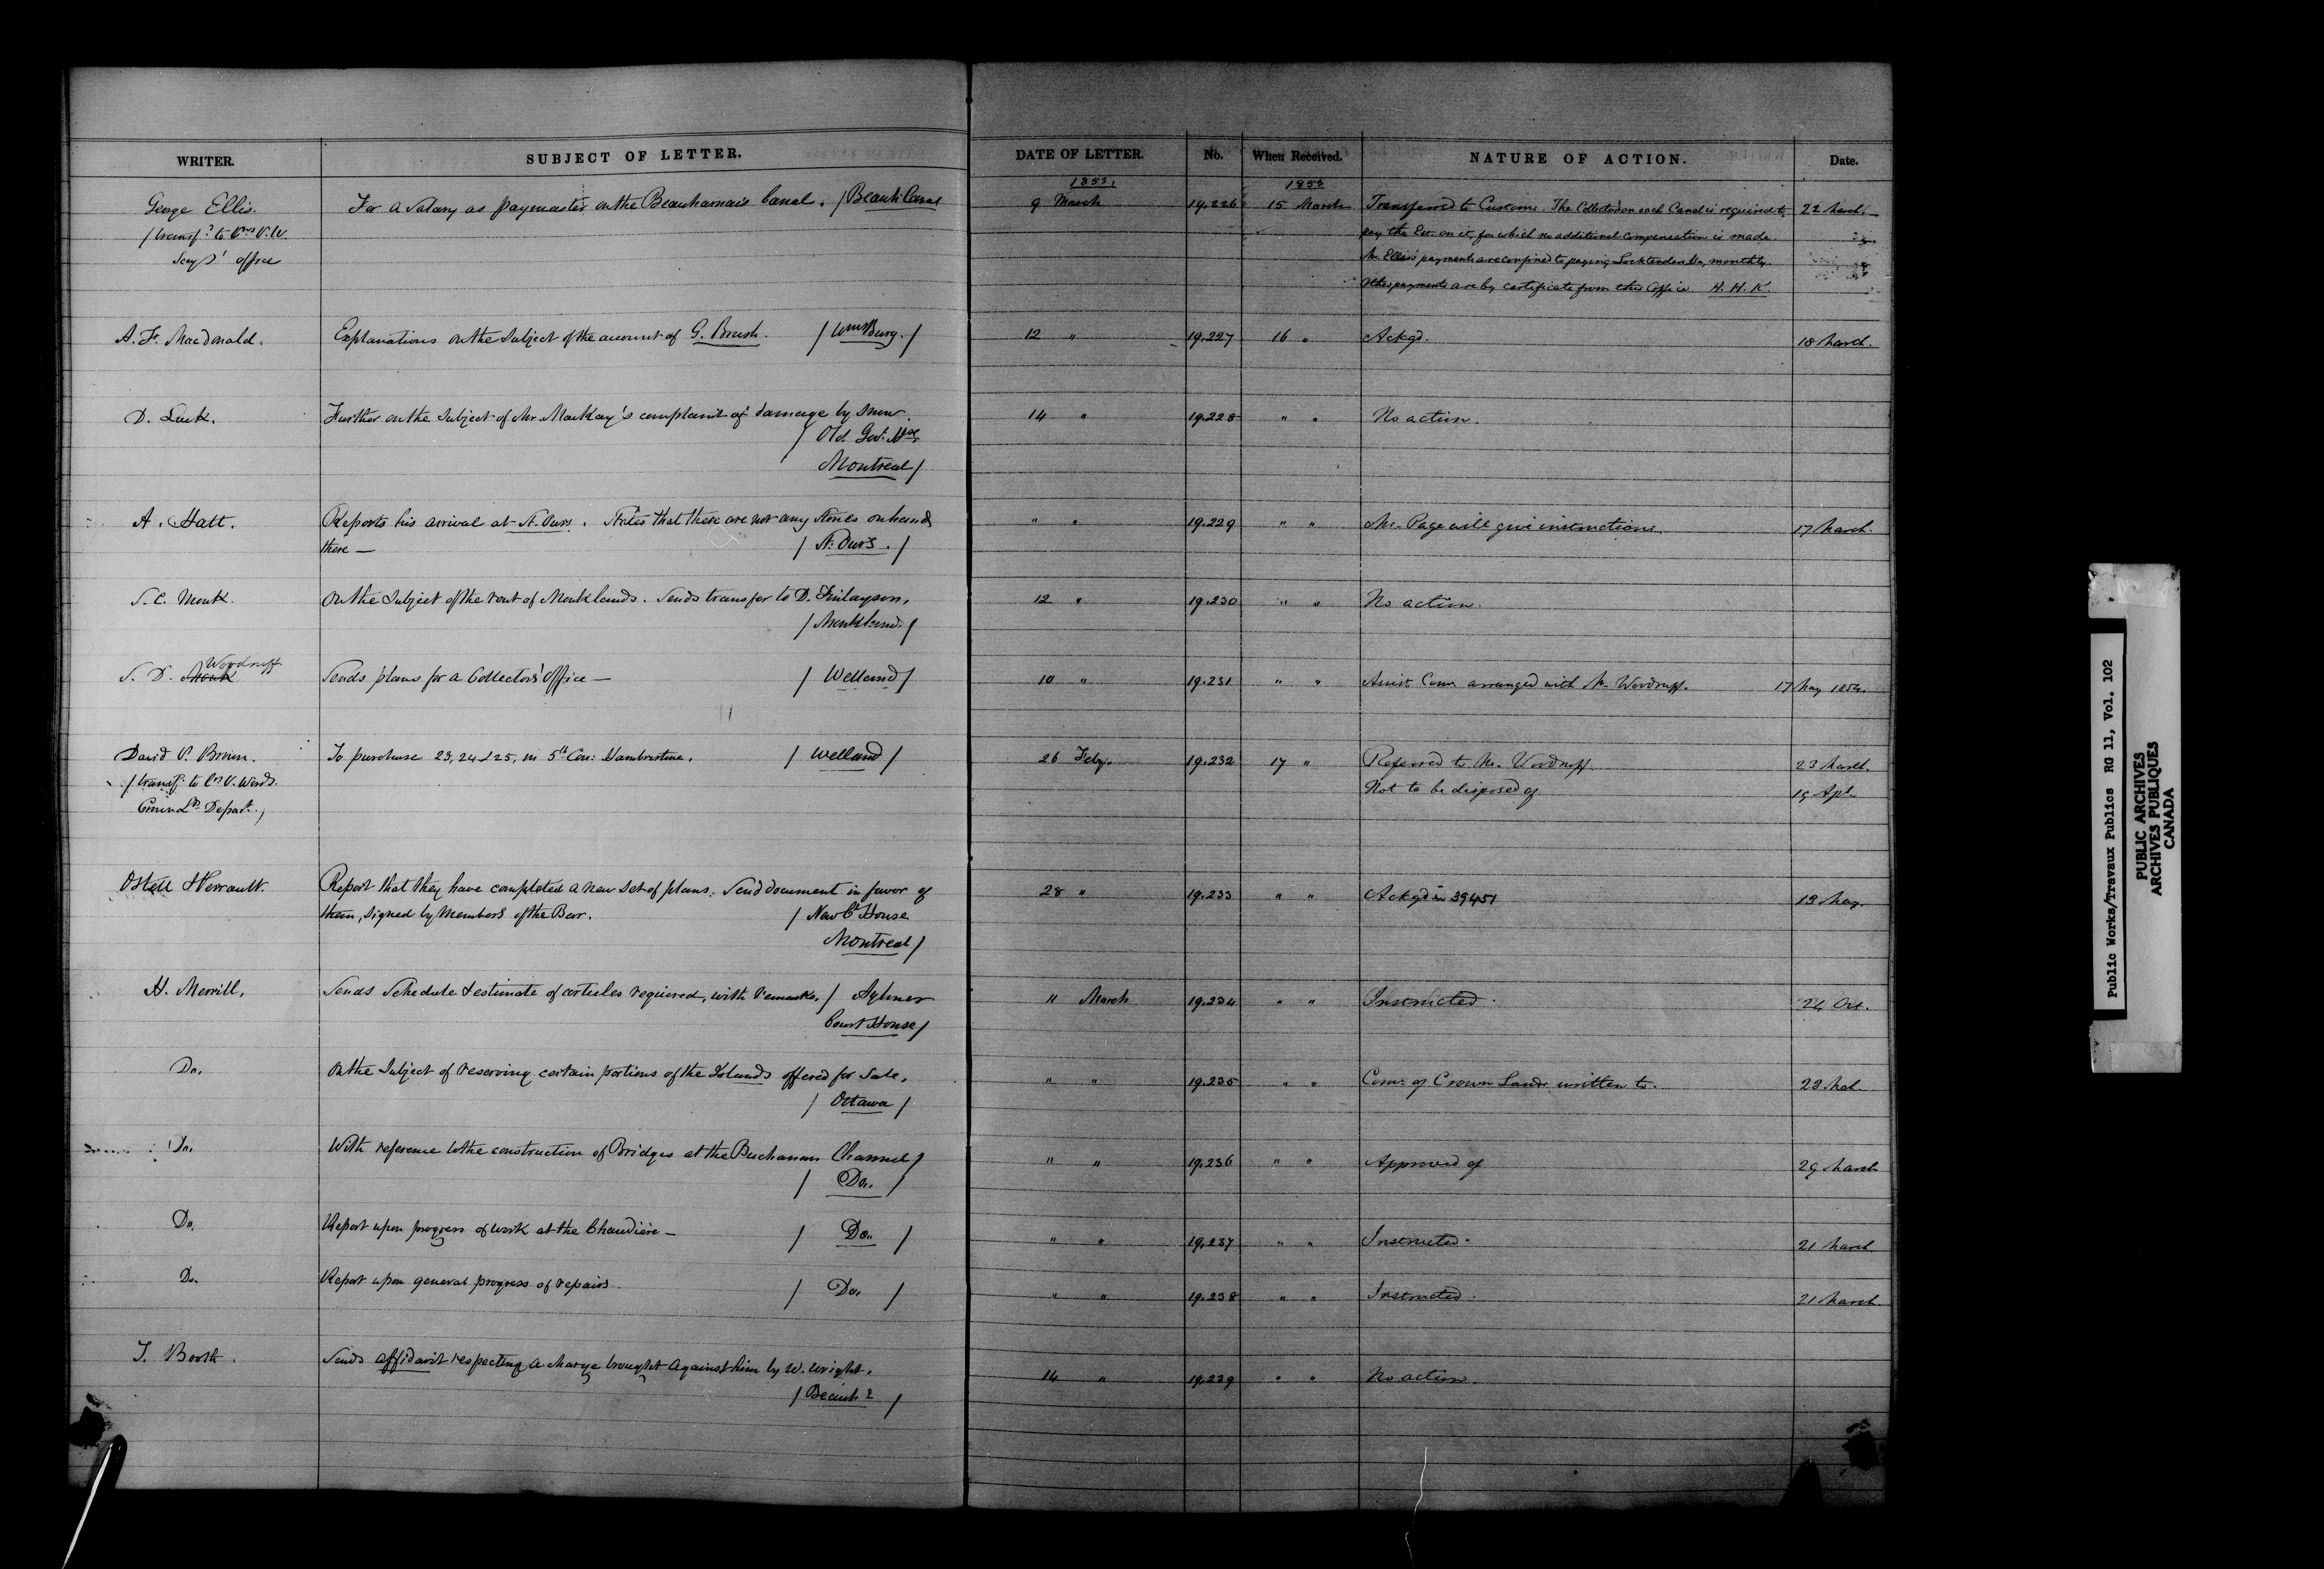 WRITER.
SUBJECT OF LETTER.
DATE OF LETTER.
No.
When Received.
NATURE OF ACTION.
Date.
1853.
1853
George Ellis.
For a Salary as paymaster on the Beauharnais Canal. / Beauh: Canal
9 March
19.226
15 March
Transferred to Customs. The Collector on each Canal is required to
22 March.
pay the on it, for which no additional compensation is made.
Mr. Ellis's payments are confined to paying Locktenders &c, monthly.
Other payments are by certificate from this Office H. H. K.
/ transf.d to P.W.
Secy's' office
A. F. MacDonald.
Explanations on the Subject of the account of G. Brush. / WmsBurg. /
12 "
19.227
16 "
Ackgd.
18 March.
D. Luck.
Further on the Subject of Mr. MacKay's complaint of damage by snow.
/ Old Govt. Hse
Montreal /
14 "
19.228
" "
No action.
A. Hatt.
Reports his arrival at St. Ours. States that there are not any Stores on hand
there — / St. Ours. /
" "
19.229
" "
Mr. Page will give instructions.
17 March.
S. C. Monk.
On the Subject of the rent of Monklands. Sends transfer to D. Finlayson.
/ Monkland. /
12 "
19.230
" "
No action.
S. D. Monk Woodruff
Sends plans for a Collector's office — / Welland /
10 "
19.231
" "
Assist. Com. arranged with Mr. Woodruff.
17 May 1854.
David P. Brown.
To purchase 23, 24 & 25, in 5th Con: Humberstone. / Welland /
26 Feby.
19.232
17 "
Referred to Mr. Woodruff.
23 March.
Not to be disposed of
19 Apl.
/ transf. to
Depart. /
Ostell & Perrault.
Report that they have completed a new set of plans. Send document in favor of
them, signed by Members of the Bar. / New Ct. House
Montreal /
28 "
19.233
" "
Ackgd in 39451
19 May.
H. Merrill.
Sends Schedule & estimate of articles required, with remarks. / Aylmer
Court House /
11 March
19.234
" "
Instructed.
24 Oct.
Do.
On the Subject of reserving certain portions of the Islands offered for Sale.
/ Ottawa /
" "
19.235
" "
Com. of Crown Lands written to.
23 Mch.
Do.
With reference to the construction of Bridges at the Buchanan Channel /
/ Do. /
" "
19.236
" "
Approved of
29 March
Do.
Report upon progress of work at the Chaudière — / Do. /
" "
19.237
" "
Instructed.
21 March
Do.
Report upon general progress of repairs / Do. /
" "
19.238
" "
Instructed.
21 March.
J. Booth.
Sends affidavit respecting a charge brought against him by W. Wright.
/ Beauh: /
14 "
19.239
" "
No action.
Public Works/Travaux Publics RG 11, Vol. 102
PUBLIC ARCHIVES
ARCHIVES PUBLIQUES
CANADA